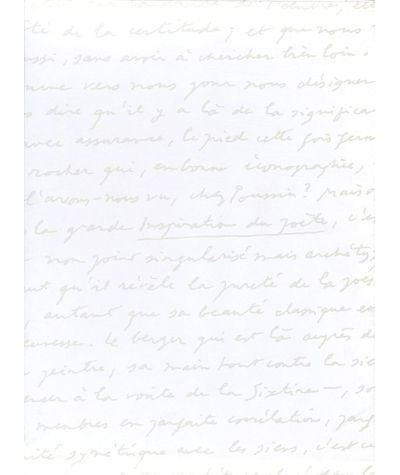 té de la certitude ; et que nous
ussi, sans avoir à chercher très loin.
comme vers nous pour nous désigner
s dire qu'il y a là de la significa
avec assurance, le pied cette fois ferm
rocher qui, en bonne iconographie,
l'avons-nous vu, chez Poussin ? Mais
la grande Inspiration du poète, c'es
non point singularisé mais archéty
ut qu'il révèle la pureté de la poés
, autant que sa beauté classique en
eunesse. Le berger qui est là auprès de
peintre, sa main tout contre la sie
enser à la voûte de la Sixtine —, so
membres en parfaite corrélation,
ité symétrique avec les siens, c'est ce